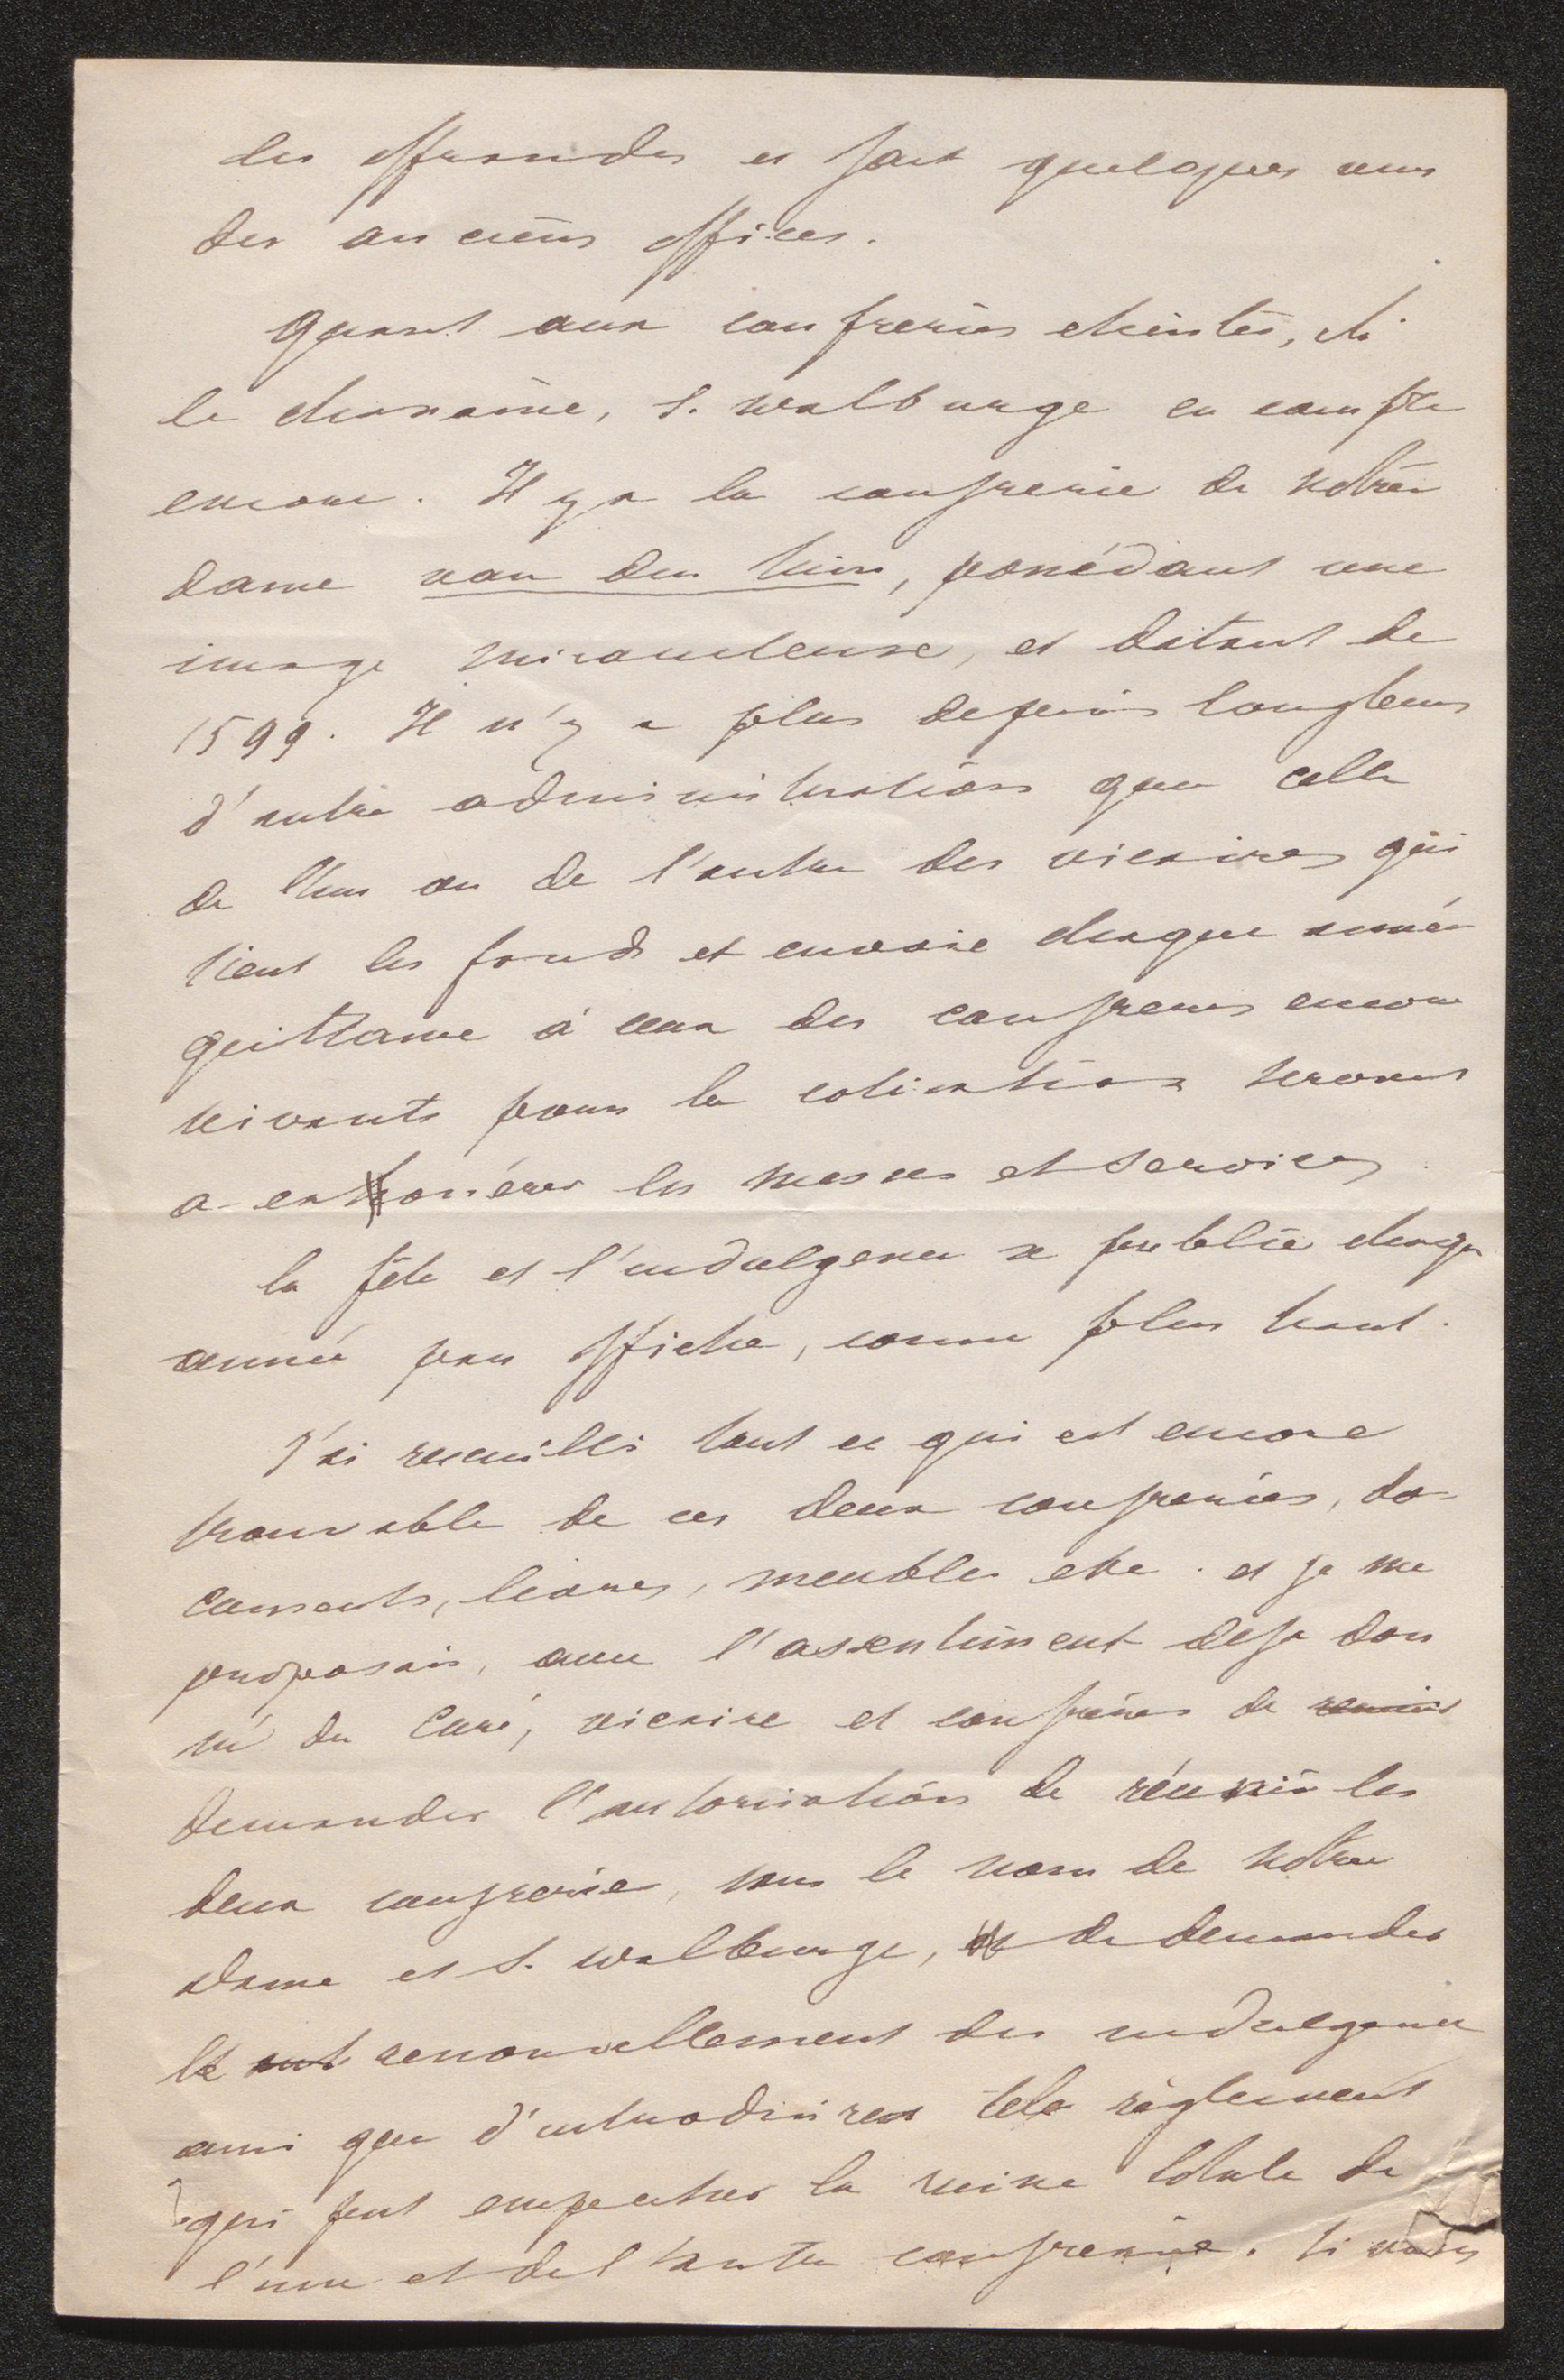 des offrandes et fait quelques uns
des anciens offices.
Quant aux confreries eteintes, di
le domaine, S. Walburge en compte
encore. Il y a la confrerie de Notre
dame van den , possédant une
image miraculeuse, et datant de
1599. Il n'y a plus depuis longtems
d'autre administration que celle
de l'un ou de l'autre des vicaires qui
tient les fonds et envoie chaque année
quittance à ceux des confreres encore
vivants pour la cotisation servant
a exonérer les messes et services
la fête et l'indulgence se publie chaque
année par affiche, comme plus haut.
J'ai recueilli tout ce qui est encore
trouvable de ces deux confreries, do-
cuments, livres, meubles etc. et je me
proposais, avec l'assentiment deja don
né du Curé, vicaire et confrères de reunir
demander l'autorisation de réunir les
deux confrerie, sous le nom de Notre
dame et S. Walburge, de demander
le renouvellement des indulgences
ainsi que d'introduire tels règlement
qui put empecher la ruine totale de
l'une et de l'autre confrerie. Si vous